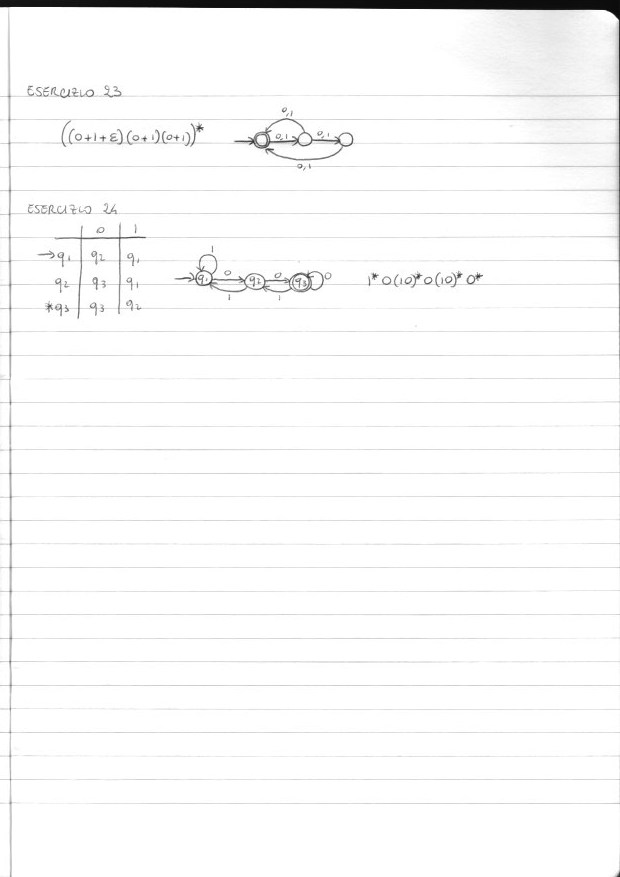 ESERCIZIO 23
((0+1+ε)(0+1)(0+1))*
0,1
0,1 0,1
0,1
ESERCIZIO 24
0 1
→q1 q2 q1
q2 q3 q1
*q3 q3 q2
1
q1 0 q2 0 q3 0
1 1
1*0(10)*0(10)*0*